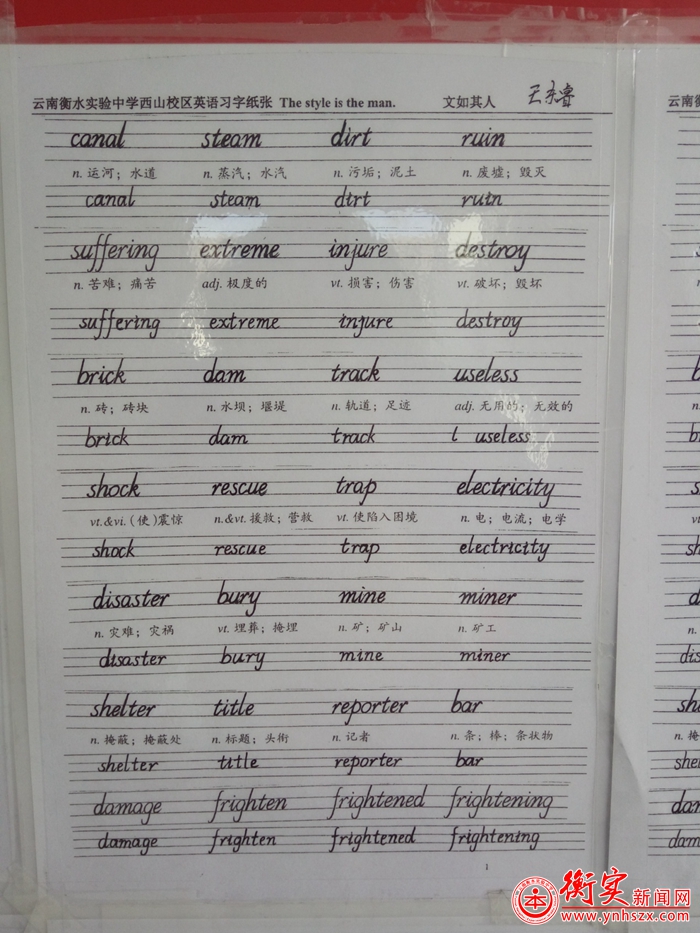 云南衡水实验中学西山校区英语习字纸张 The style is the man. 文如其人
canal steam dirt ruin
n. 运河；水道 n. 蒸汽；水汽 n. 污垢；泥土 n. 废墟；毁灭
canal steam dirt ruin
suffering extreme injure destroy
n. 苦难；痛苦 adj. 极度的 vt. 损害；伤害 vt. 破坏；毁坏
suffering extreme injure destroy
brick dam track useless
n. 砖；砖块 n. 水坝；堰堤 n. 轨道；足迹 adj. 无用的；无效的
brick dam track l useless
shock rescue trap electricity
vt.&vi. (使)震惊 n.&vt. 援救；营救 vt. 使陷入困境 n. 电；电流；电学
shock rescue trap electricity
disaster bury mine miner
n. 灾难；灾祸 vt. 埋葬；掩埋 n. 矿；矿山 n. 矿工
disaster bury mine miner
shelter title reporter bar
n. 掩蔽；掩蔽处 n. 标题；头衔 n. 记者 n. 条；棒；条状物
shelter title reporter bar
damage frighten frightened frightening
damage frighten frightened frightening
1
衡实新闻网
www.ynhszx.com